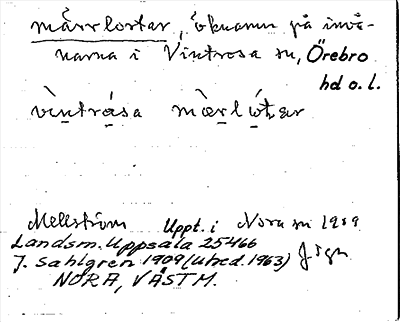 märrlortar, öknamn på invå-
narna i Vintrosa sn, Örebro
hd o. l.
vìntrása mæ̀rlótar
Mellström Uppt. i Nora sn 1909
Landsm. Uppsala 25466
J. Sahlgren 1909 (utred. 1963)
NORA, VÄSTM.